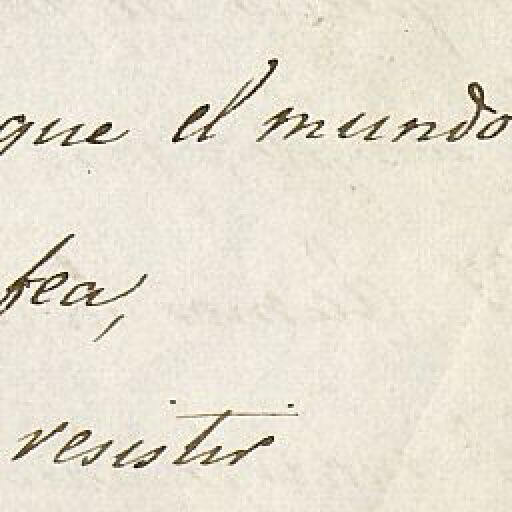 que el mundo
fea,
resistir